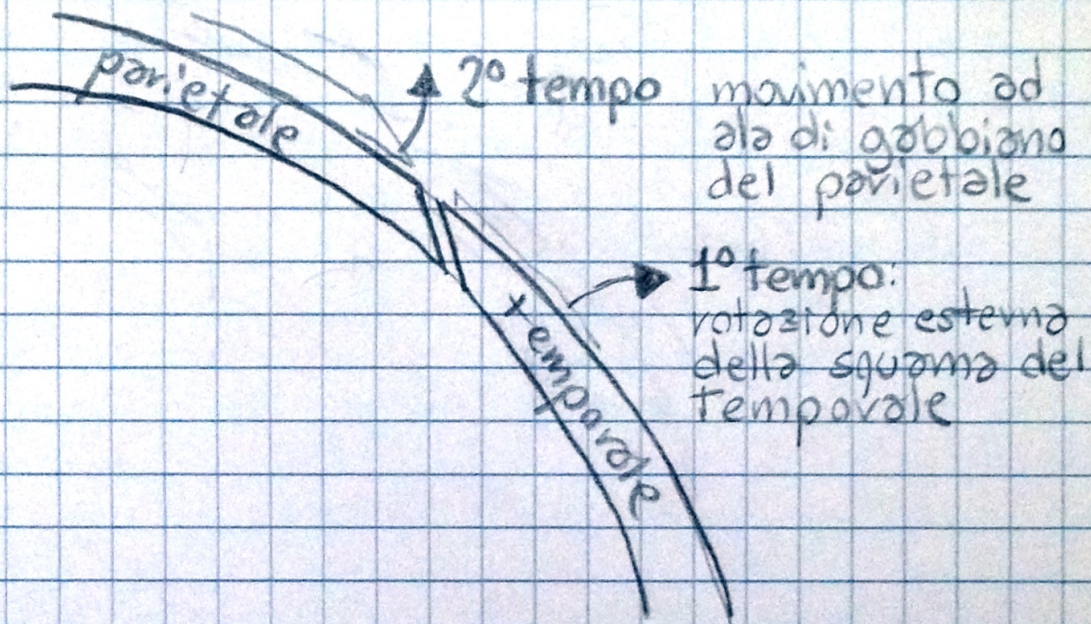 parietale
2° tempo movimento ad
ala di gabbiano
del parietale
1° tempo:
rotazione esterna
della squama del
temporale
temporale